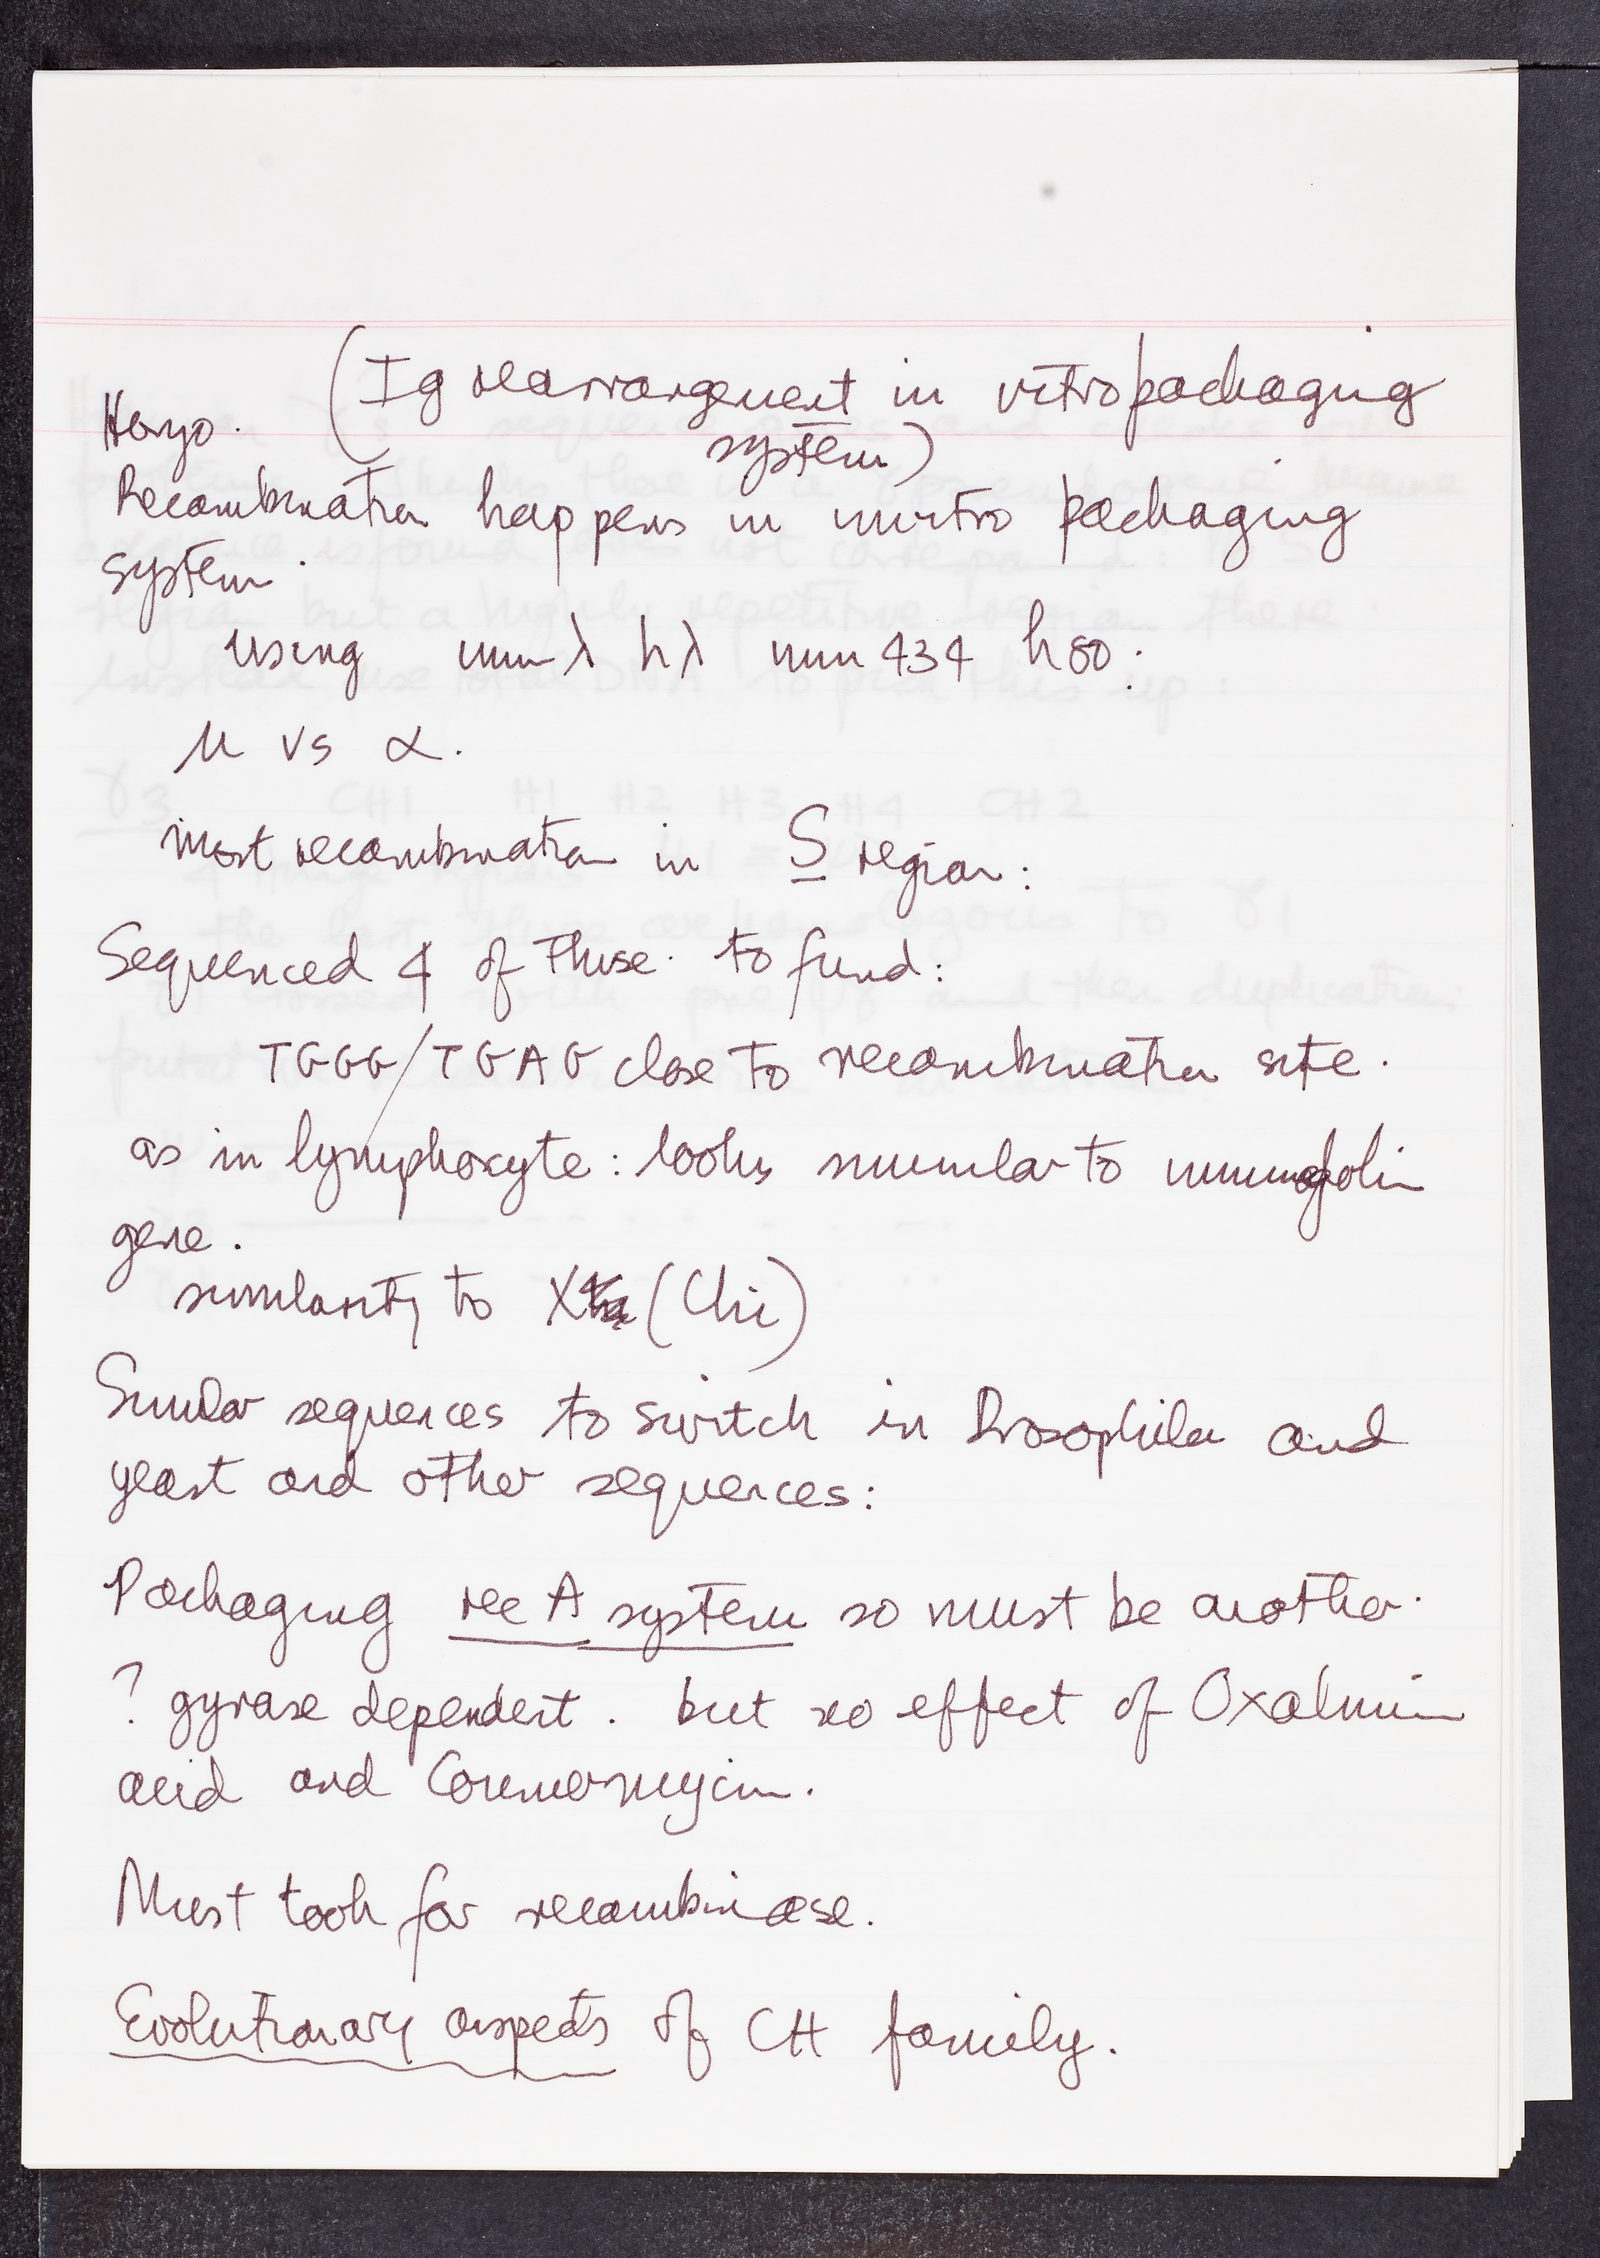 Honjo. (Ig rearrangement in vitro packaging
system)
Recombination happens in invitro packaging
system.
using imm λ hλ imm 434 h80.
μ vs α.
most recombination in S region:
Sequenced 4 of these. to find:
TGGG/TGAG close to recombination site.
as in lymphocyte: looks similar to
gene.
similarity to X (Chi)
Similar sequences to switch in Drosophila and
yeast and other sequences:
Packaging rec A system so must be another.
? gyrase dependent. but no effect of
acid and
Must look for recombinase.
Evolutionary aspects of CH family.